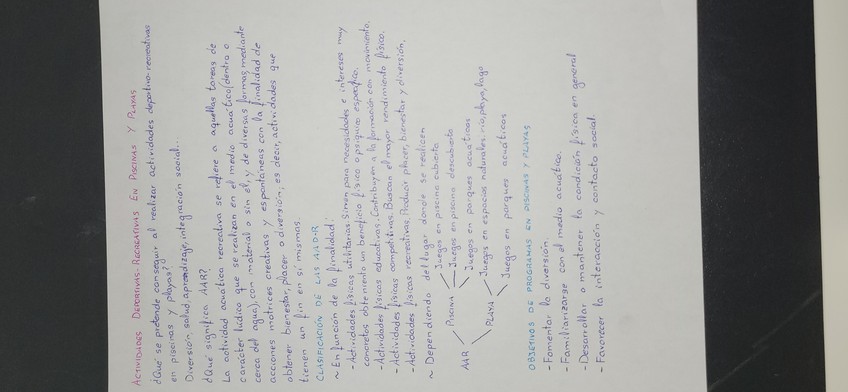 ACTIVIDADES DEPORTIVAS-RECREATIVAS EN PISCINAS Y PLAYAS
¿Qué se pretende conseguir al realizar actividades deportivo-recreativas
en piscinas y playas?
Diversión, salud, aprendizaje, integración social...
¿Qué significa AAR?
La actividad acuática recreativa se refiere a aquellas tareas de
carácter lúdico que se realizan en el medio acuático (dentro o
cerca del agua), con material o sin él, y de diversas formas, mediante
acciones motrices creativas y espontáneas con la finalidad de
obtener bienestar, placer o diversión, es decir, actividades que
tienen un fin en sí mismas.
CLASIFICACIÓN DE LAS A.A.D-R
~ En función de la finalidad:
- Actividades físicas utilitarias: Sirven para necesidades e intereses muy
concretos obteniento un beneficio físico o psíquico específico.
- Actividades físicas educativas: Contribuyen a la formación con movimiento.
- Actividades físicas competitivas: Buscan el mayor rendimiento físico.
- Actividades físicas recreativas: Producir placer, bienestar y diversión.
~ Dependiendo del lugar donde se realicen
AAR
PISCINA
Juegos en piscina cubierta
Juegos en piscina descubierta
Juegos en parques acuáticos
PLAYA
Juegos en espacios naturales: río, playa, lago
Juegos en parques acuáticos
OBJETIVOS DE PROGRAMAS EN PISCINAS Y PLAYAS
- Fomentar la diversión.
- Familiarizarse con el medio acuático.
- Desarrollar o mantener la condición física en general
- Favorecer la interacción y contacto social.